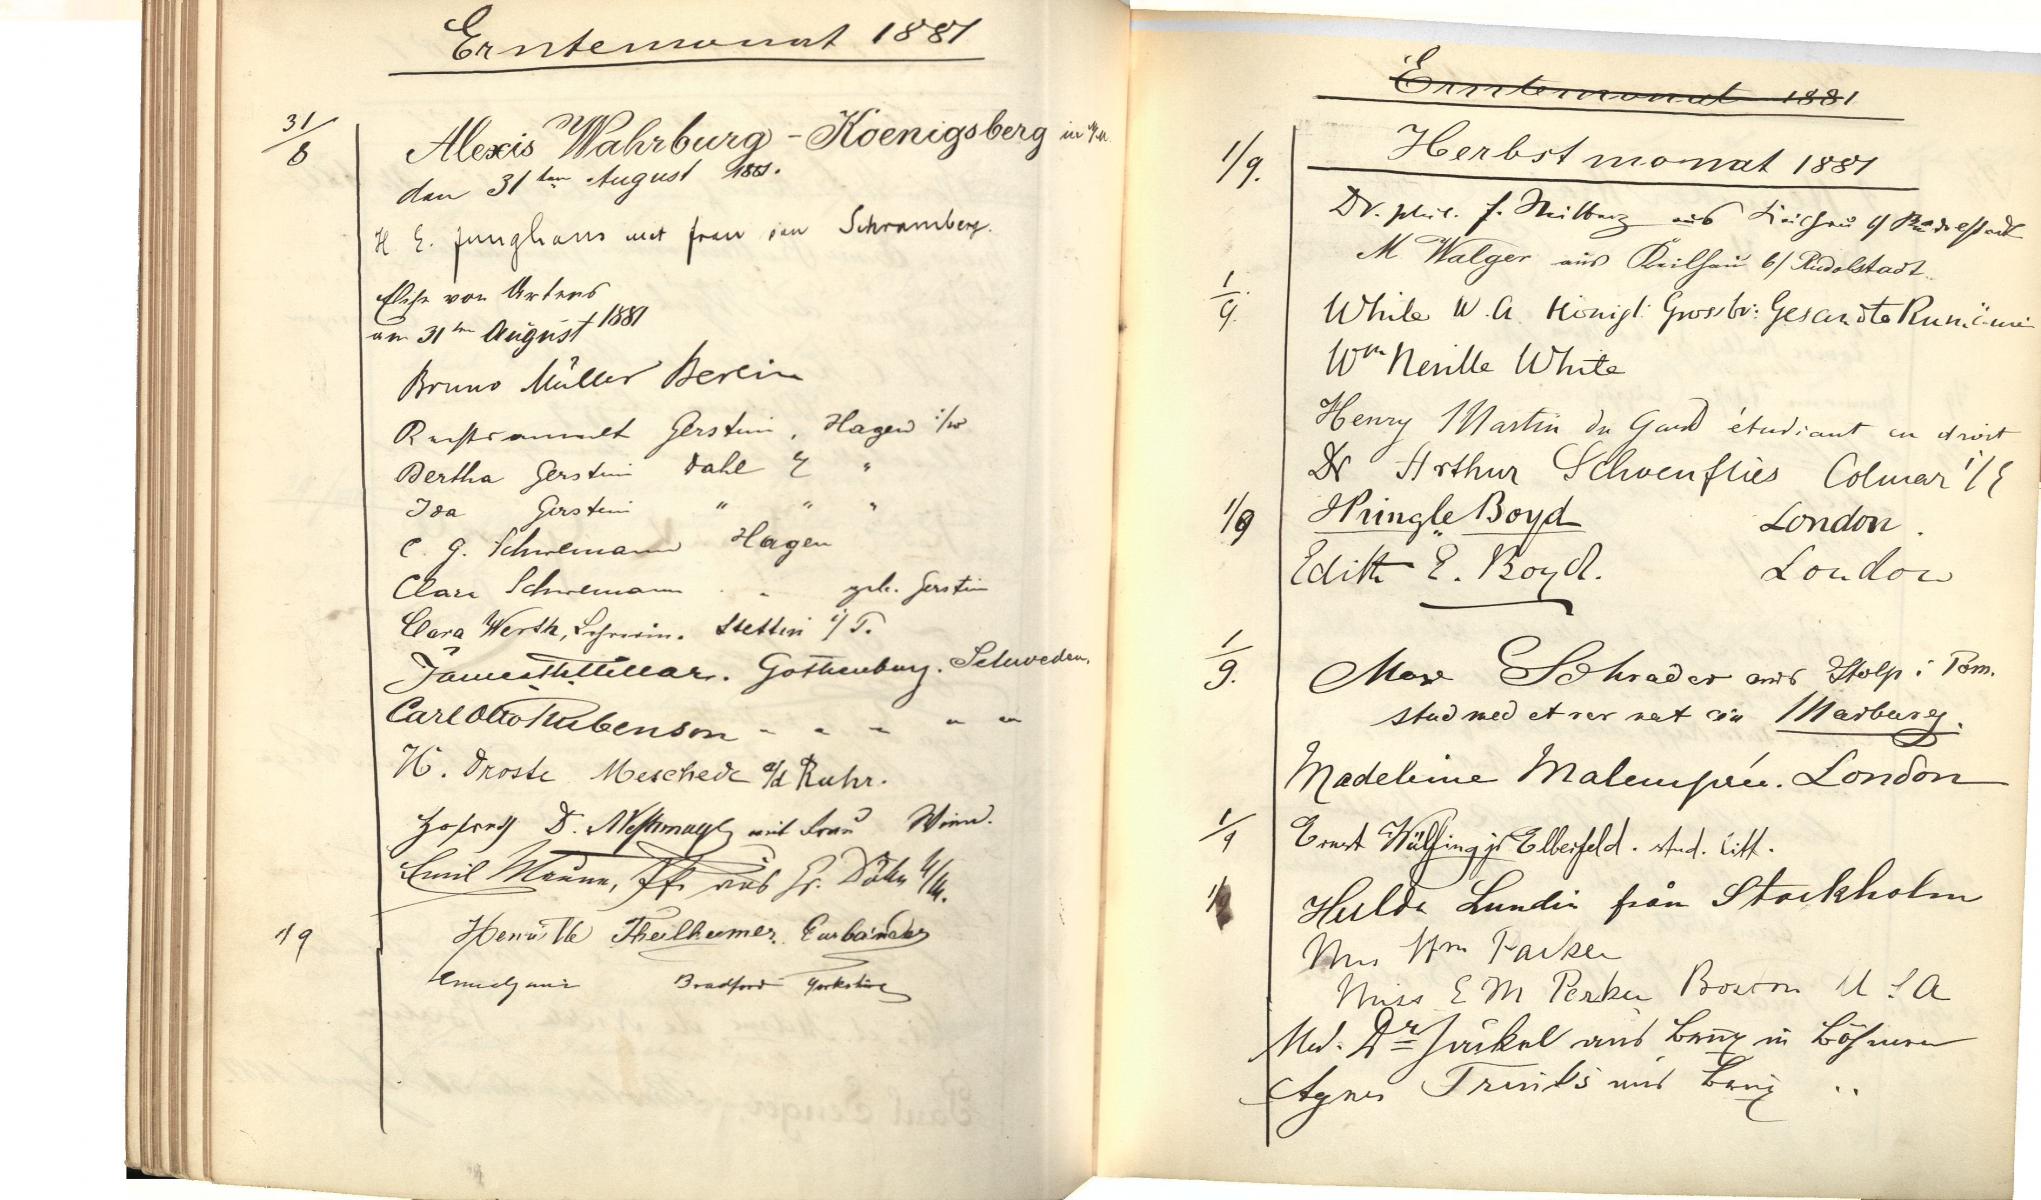 Erntemonat 1881
31/8
Alexis Wahrburg - Koenigsberg in
den 31ten August 1881.
H E. Junghans mit Frau von Schramberg.
Elise von
am 31ten August 1881
Bruno Müller Berlin
Rechtsanwalt Gerstein, Hagen i/w
Bertha Gerstein Dahl
Ida Gerstein " " "
C. G. Schwemann Hagen
Clara Schwemann " geb. Gerstein
Clara Werth, Stettin
James Gothenburg. Schweden.
Carl Otto Rubenson " " " " "
H. Droste Meschede a/d Ruhr.
D. mit Frau Wien.
Emil aus
1/9
Theilheimer
Bradford Yorkshire
Erntemonat 1881
1/9.
Herbstmonat 1881
Dr. phil. aus Keilhau b/ Rudolstadt
M Walger aus Keilhau b/ Rudolstadt.
1/9.
White W. A Königl: Grossbr: Gesandte Rumänien
Wm Neville White
Henry Martin du Gard étudiant en droit
Dr Arthur Schoenflies Colmar i/E
1/9
HPringle Boyd London.
Edith E. Boyd. London
1/9.
Max Schrader aus Stolp i Pom.
stud med et rer nat in Marburg.
Madeleine London
1/9
Ernst Wülfing jr Elberfeld. stud. litt.
1/9
Hulda Lundin från Stockholm
Mrs Wm Parker
Miss E M Parker Boston U S A
Med. Dr Jäckel aus in Böhmen
Agnes aus "